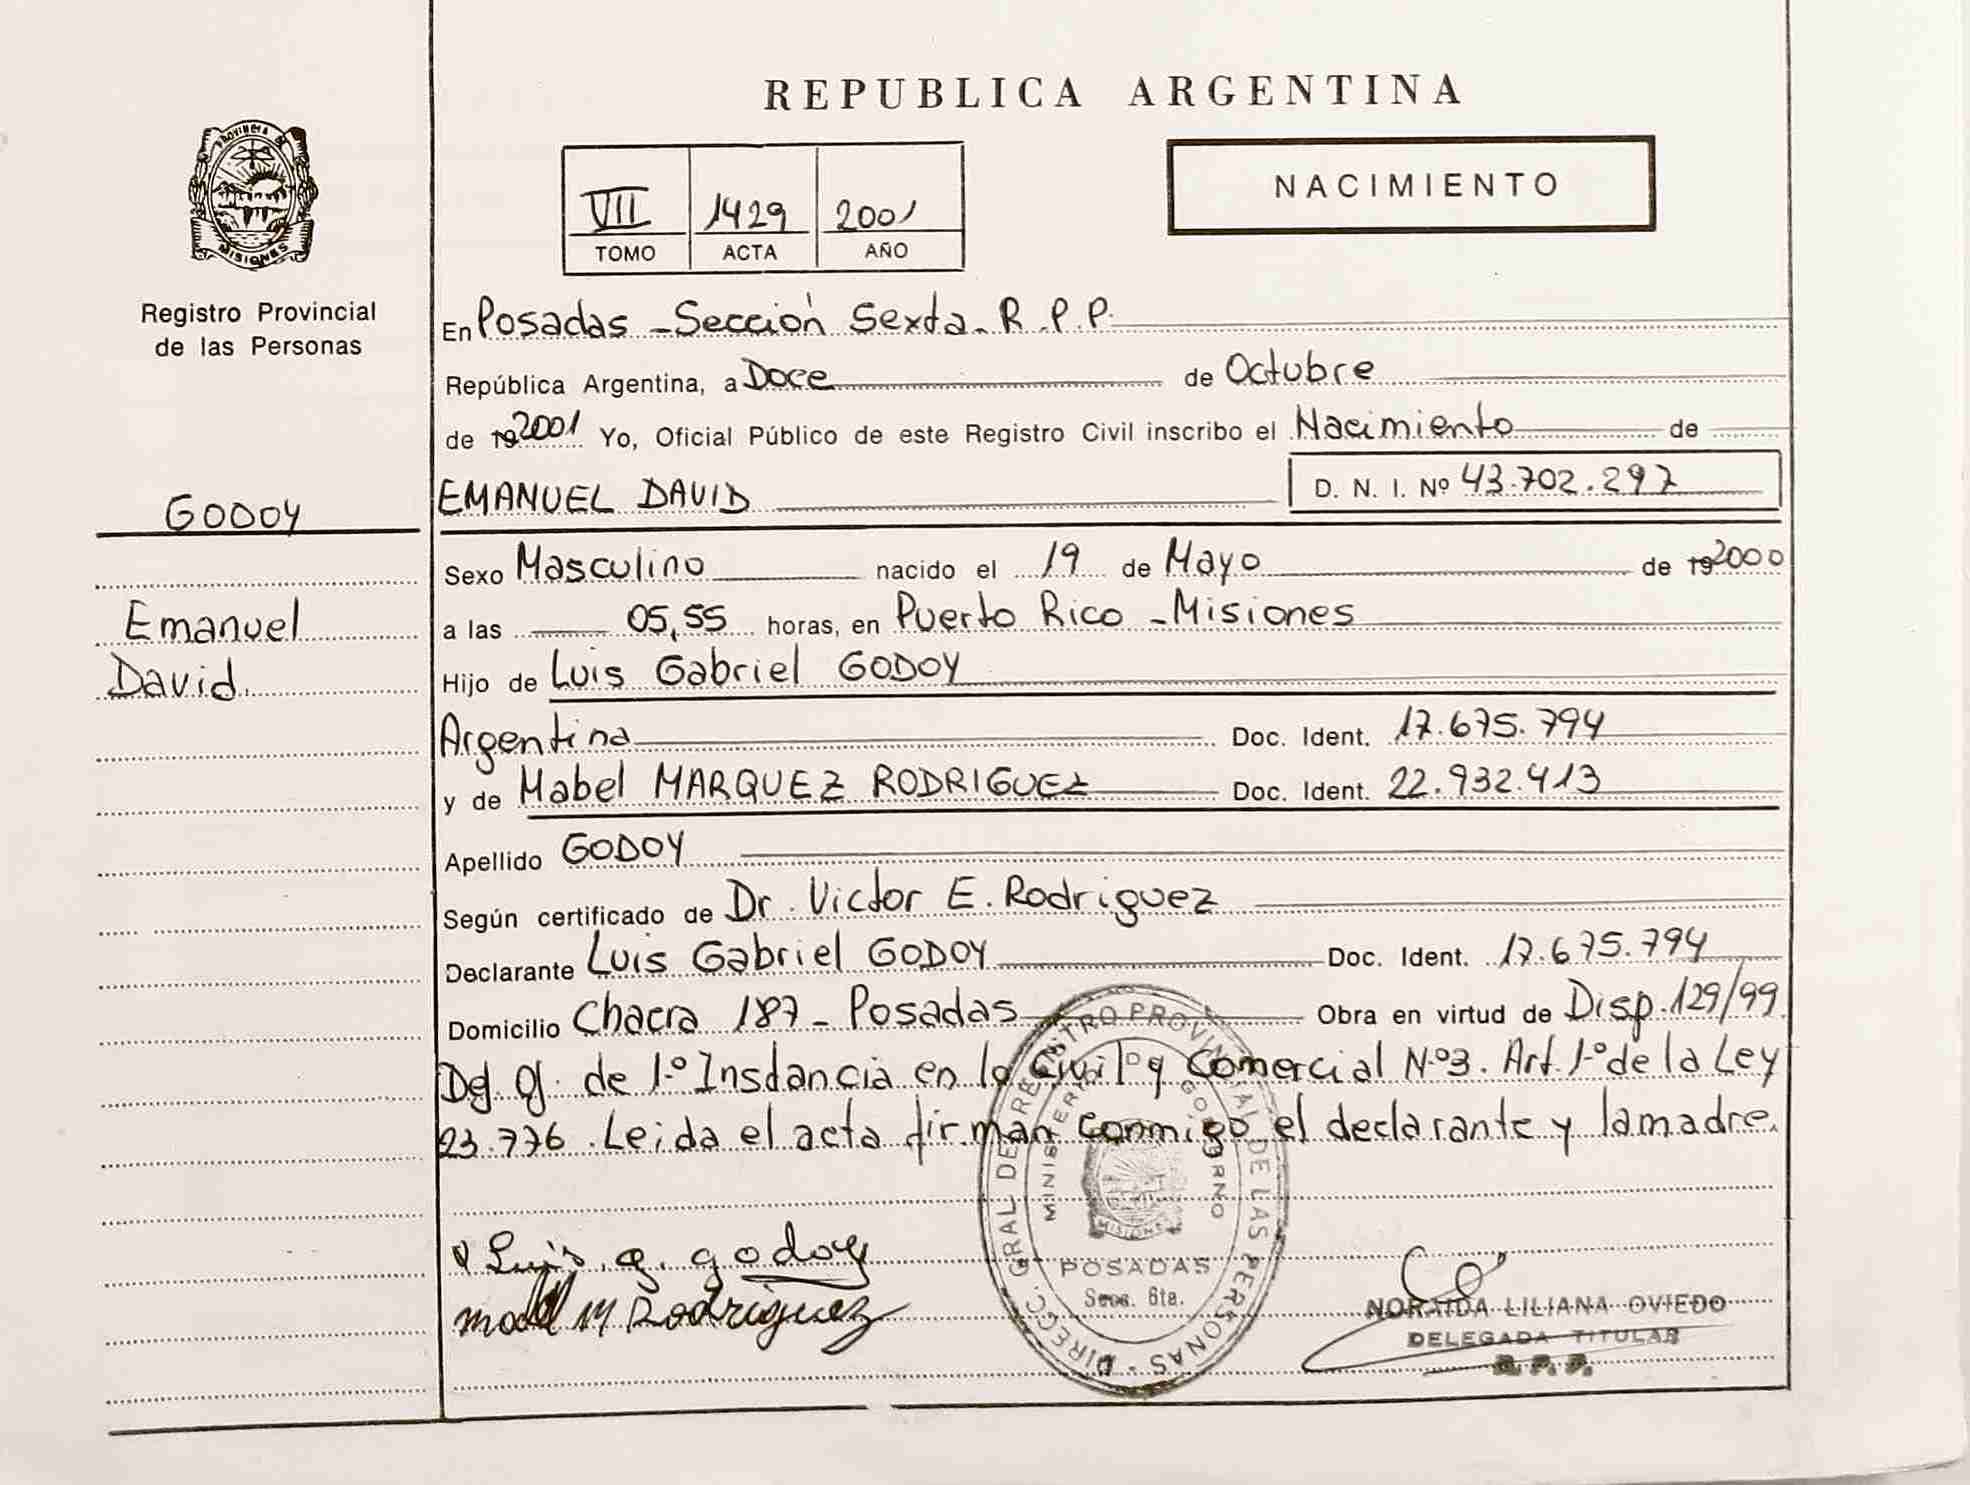 REPUBLICA ARGENTINA
PROVINCIA DE
MISIONES
Registro Provincial
de las Personas
VII 1429 2001
TOMO ACTA AÑO
NACIMIENTO
En Posadas - Sección Sexta. R.P.P.
República Argentina, a Doce de Octubre
de 19 2001 Yo, Oficial Público de este Registro Civil inscribo el Nacimiento de
GODOY
EMANUEL DAVID D. N. I. Nº 43.702.297
Sexo Masculino nacido el 19 de Mayo de 19 2000
Emanuel
David.
a las 05,55 horas, en Puerto Rico - Misiones
Hijo de Luis Gabriel GODOY
Argentina Doc. Ident. 17.675.794
y de Mabel MARQUEZ RODRIGUEZ Doc. Ident. 22.932.413
Apellido GODOY
Según certificado de Dr. Victor E. Rodriguez
Declarante Luis Gabriel GODOY Doc. Ident. 17.675.794
Domicilio Chacra 187 - Posadas Obra en virtud de Disp. 129/99
de 1.º Instancia en lo Civil y Comercial N.º 3. Art. 1.º de la Ley
23.776. Leida el acta firman conmigo el declarante y la madre.
Luis. g. godoy
M Rodriguez
DIRECC. GRAL DE REGISTRO PROVINCIAL DE LAS PERSONAS
MINISTERIO DE GOBIERNO
MISIONES
POSADAS
Secc. 6ta.
NORAIDA LILIANA OVIEDO
DELEGADA TITULAR
R.P.P.